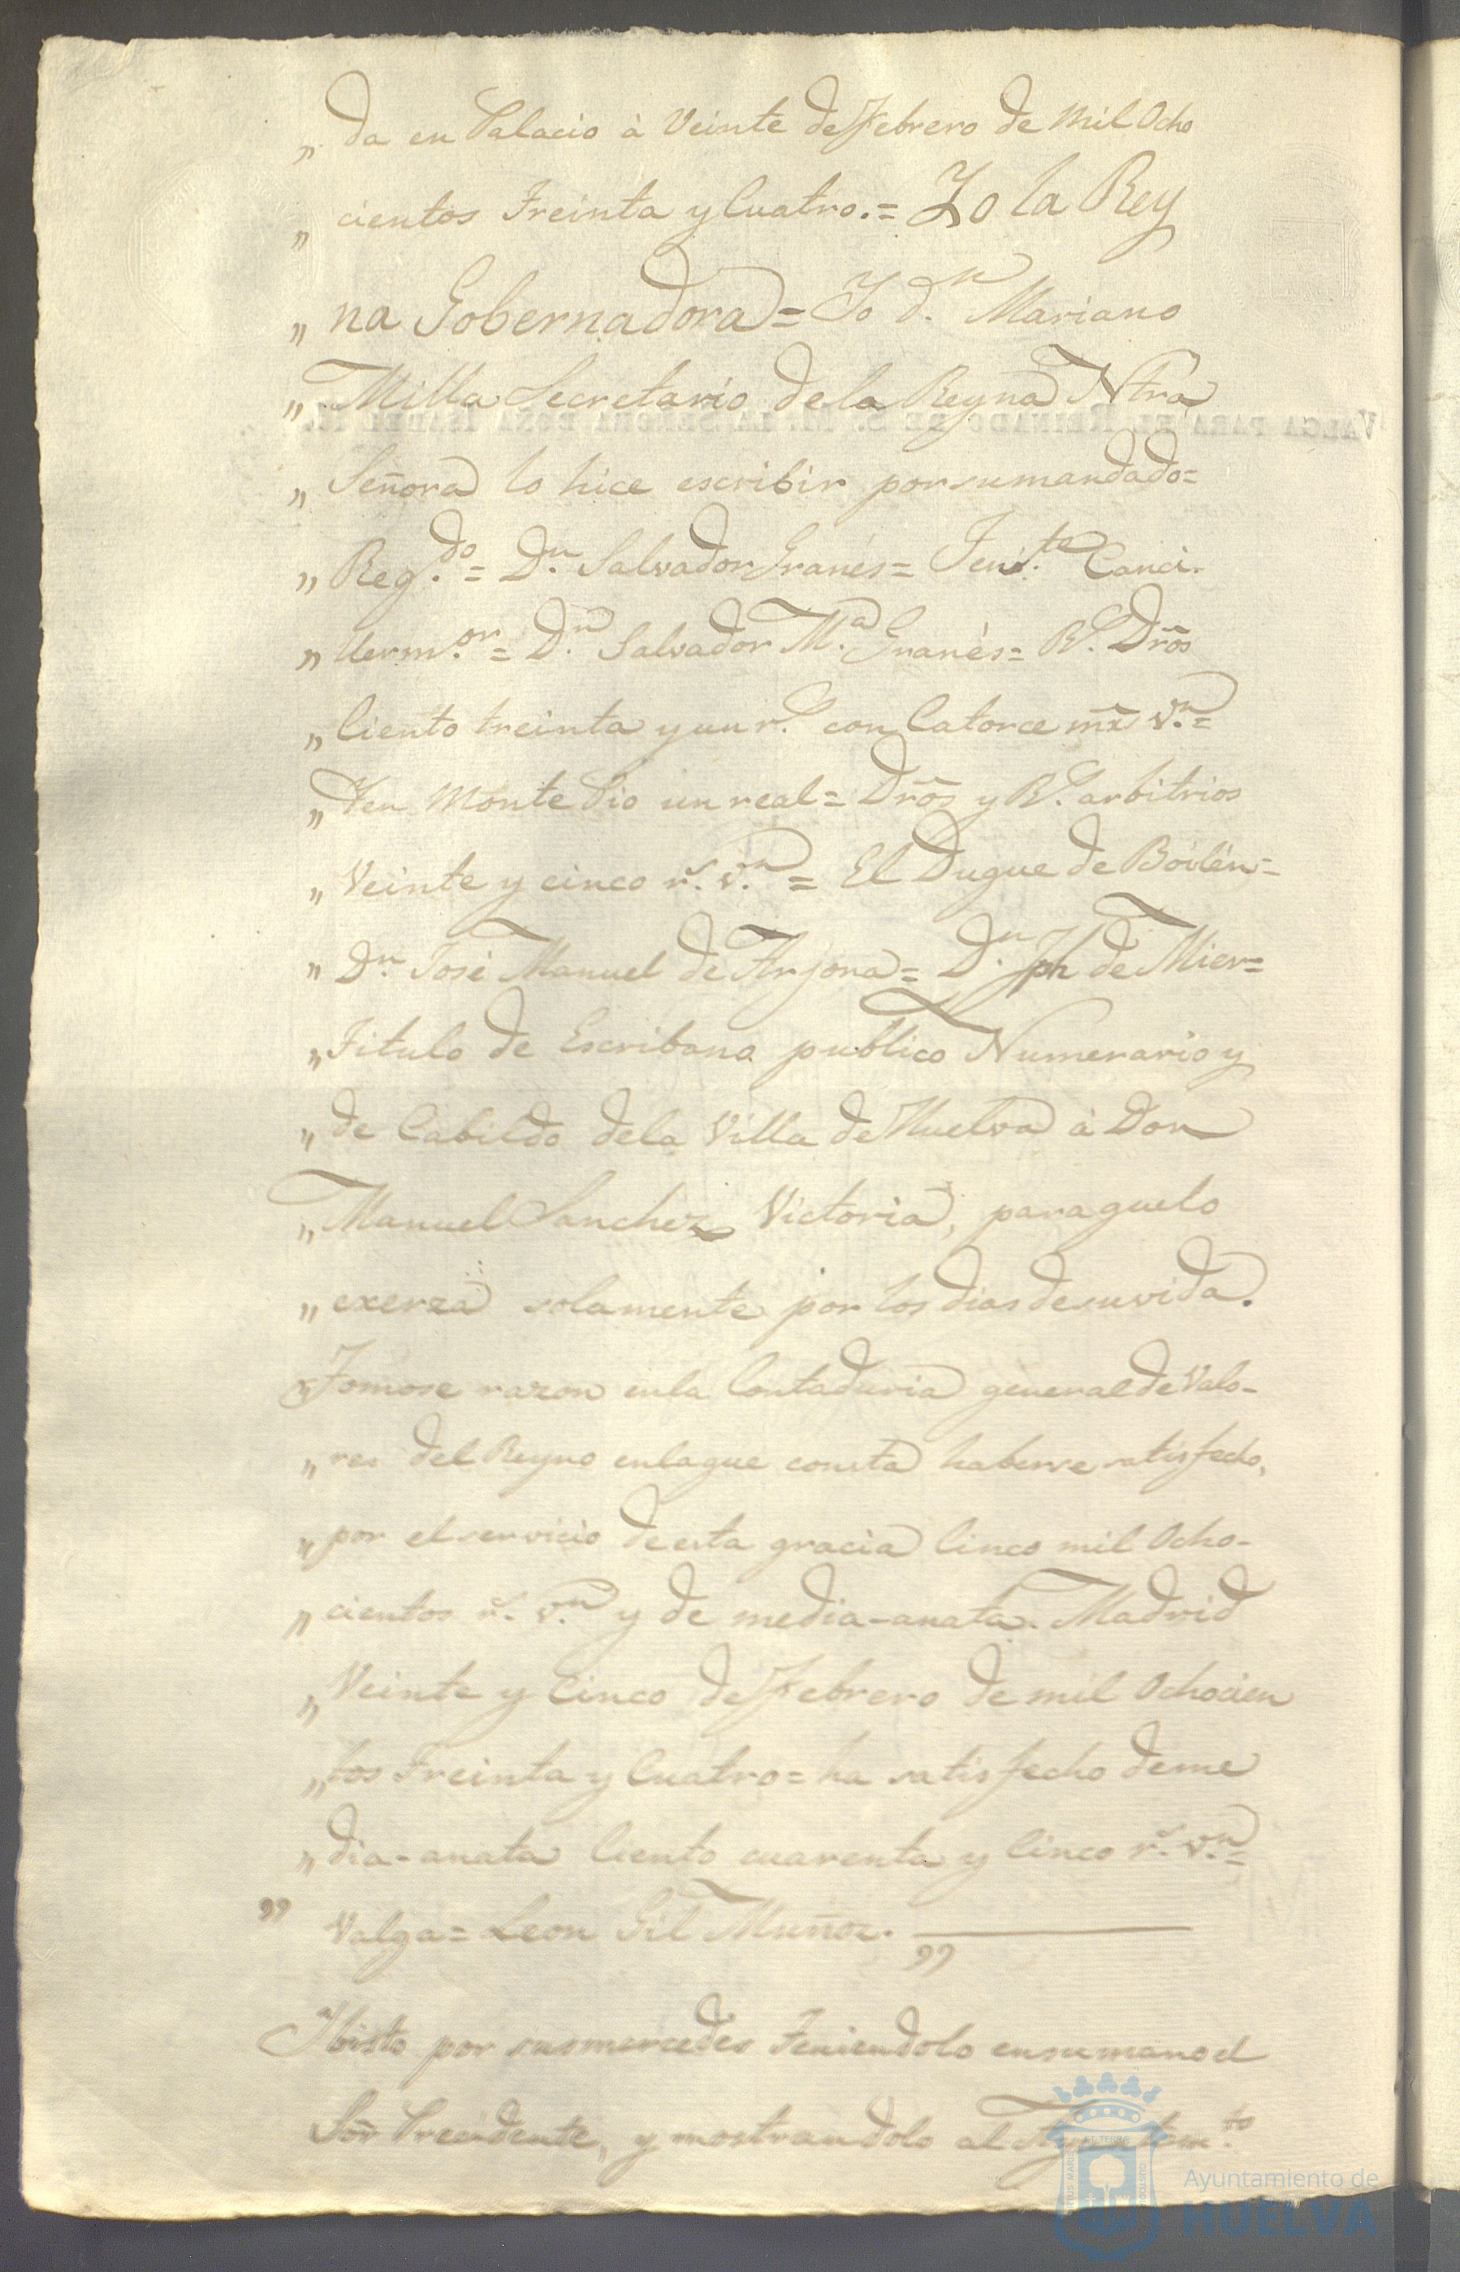 „ da en Palacio à Veinte de Febrero de Mil Ocho
„ cientos Treinta y Cuatro.= Yo la Rey
„ na Gobernadora= Yo d.n Mariano
„ Milla Secretario de la Reyna Ntra
„ Señora lo hice escribir por su mandado=
„ Reg.do = D.n Salvador Granés= Ten.te Canci.
„ llerm.or = D.n Salvador M.a Granés= R.s Drōs
„ Ciento treinta y un r.s con Catorce mx v.n=
„ Yen Monte Pio un real= Drōs y R.s arbitrios
„ Veinte y cinco r.s v.n = El Duque de Bailén=
„ D.n José Manuel de Arjona= D.n Jph de Mier=
„ Titulo de Escribano publico Numerario y
„ de Cabildo dela Villa de Huelva à Don
„ Manuel Sanchez Victoria, para quelo
„ exerza solamente por los dias de su vida.
„ Tomose razon enla Contaduria general de Valo-
„ res del Reyno enlaque consta haberse satisfecho,
„ por el servicio de esta gracia Cinco mil Ocho-
„ cientos r.s v.n y de media-anata. Madrid
„ Veinte y Cinco de Febrero de mil Ochocien
„ tos Treinta y Cuatro= ha satisfecho deme
„ dia-anata Ciento cuarenta y Cinco r.s v.n=
„ Valga= Leon Gil Muñoz. ——— „
Y bisto por susmercedes Teniendolo ensumano el
Sōr Precidente, y mostrandolo al Ayuntam.to
VALGA PARA EL REINADO DE S. M. LA SEÑORA DOÑA ISABEL II.
Ayuntamiento de
HUELVA